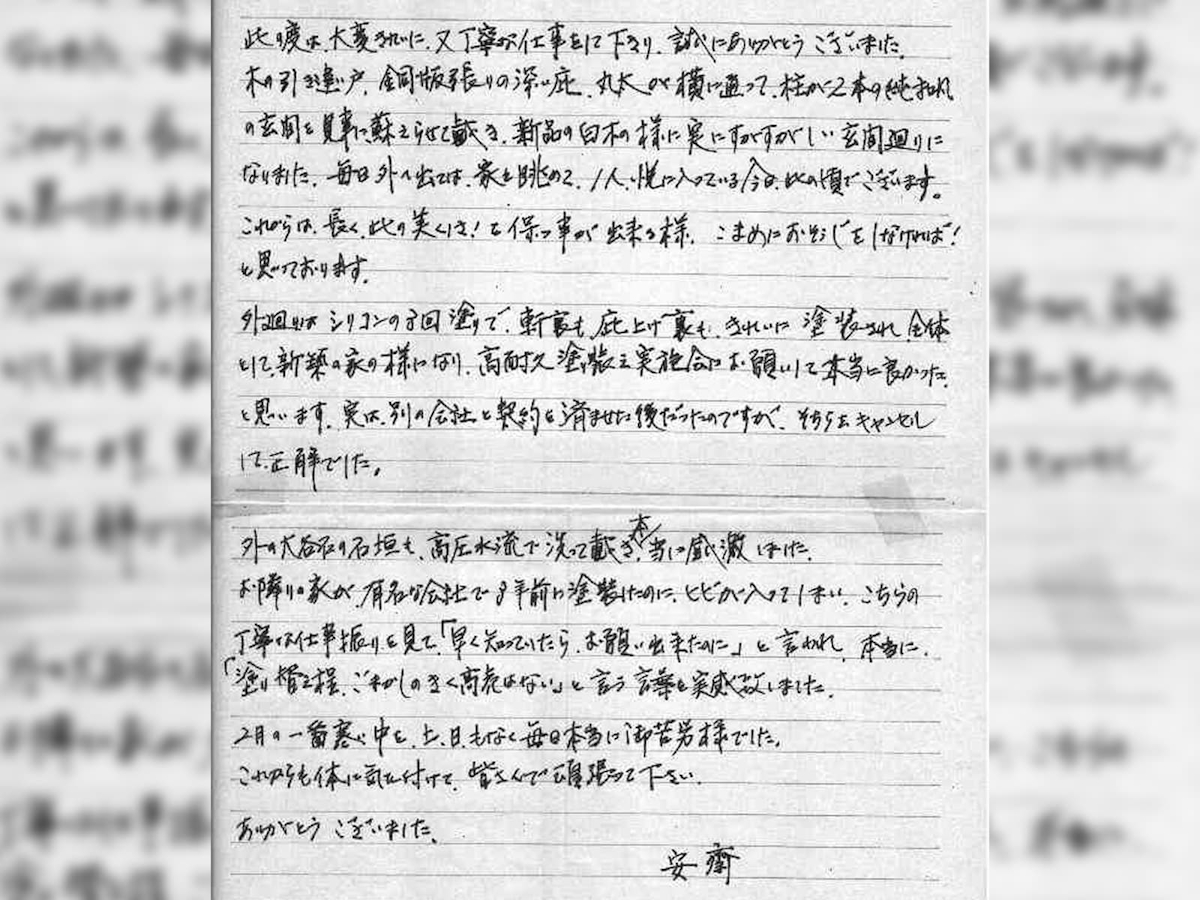 此の度は、大変きれいに、又丁寧な仕事をして下さり、誠にありがとうございました。
木の引き違い戸、銅版張りの深い庇、丸太が横に通って、柱が2本の純和風
の玄関を見事に蘇えらせて戴き、新品の白木の様に実にすがすがしい玄関廻りに
なりました。毎日外へ出ては、家を眺めて、1人、悦に入っている今日、此の頃でございます。
これからは、長く、此の美くしさ!を保つ事が出来る様、こまめにおそうじをしなければ!
と思っております。
外廻りは、シリコンの3回塗りで、軒裏も、庇上げ裏も、きれいに塗装され、全体
として、新築の家の様になり、高耐久塗装を実施会にお願いして本当に良かった
と思います。実は、別の会社と契約を済ませた後だったのですが、そちらをキャンセル
して、正解でした。
外の大谷石の石垣も、高圧水流で洗って戴き、本当に感激しました。
お隣りの家が、有名な会社で3年前に塗装したのに、ヒビが入ってしまい、こちらの
丁寧な仕事振りを見て、「早く知っていたら、お願い出来たのに」と言われ、本当に、
「塗り替え程、ごまかしのきく商売はない」と言う言葉を実感致しました。
2月の一番寒い中を、土、日もなく毎日本当に御苦労様でした。
これからも体に気を付けて、皆さんで頑張って下さい。
ありがとうございました。
安齋